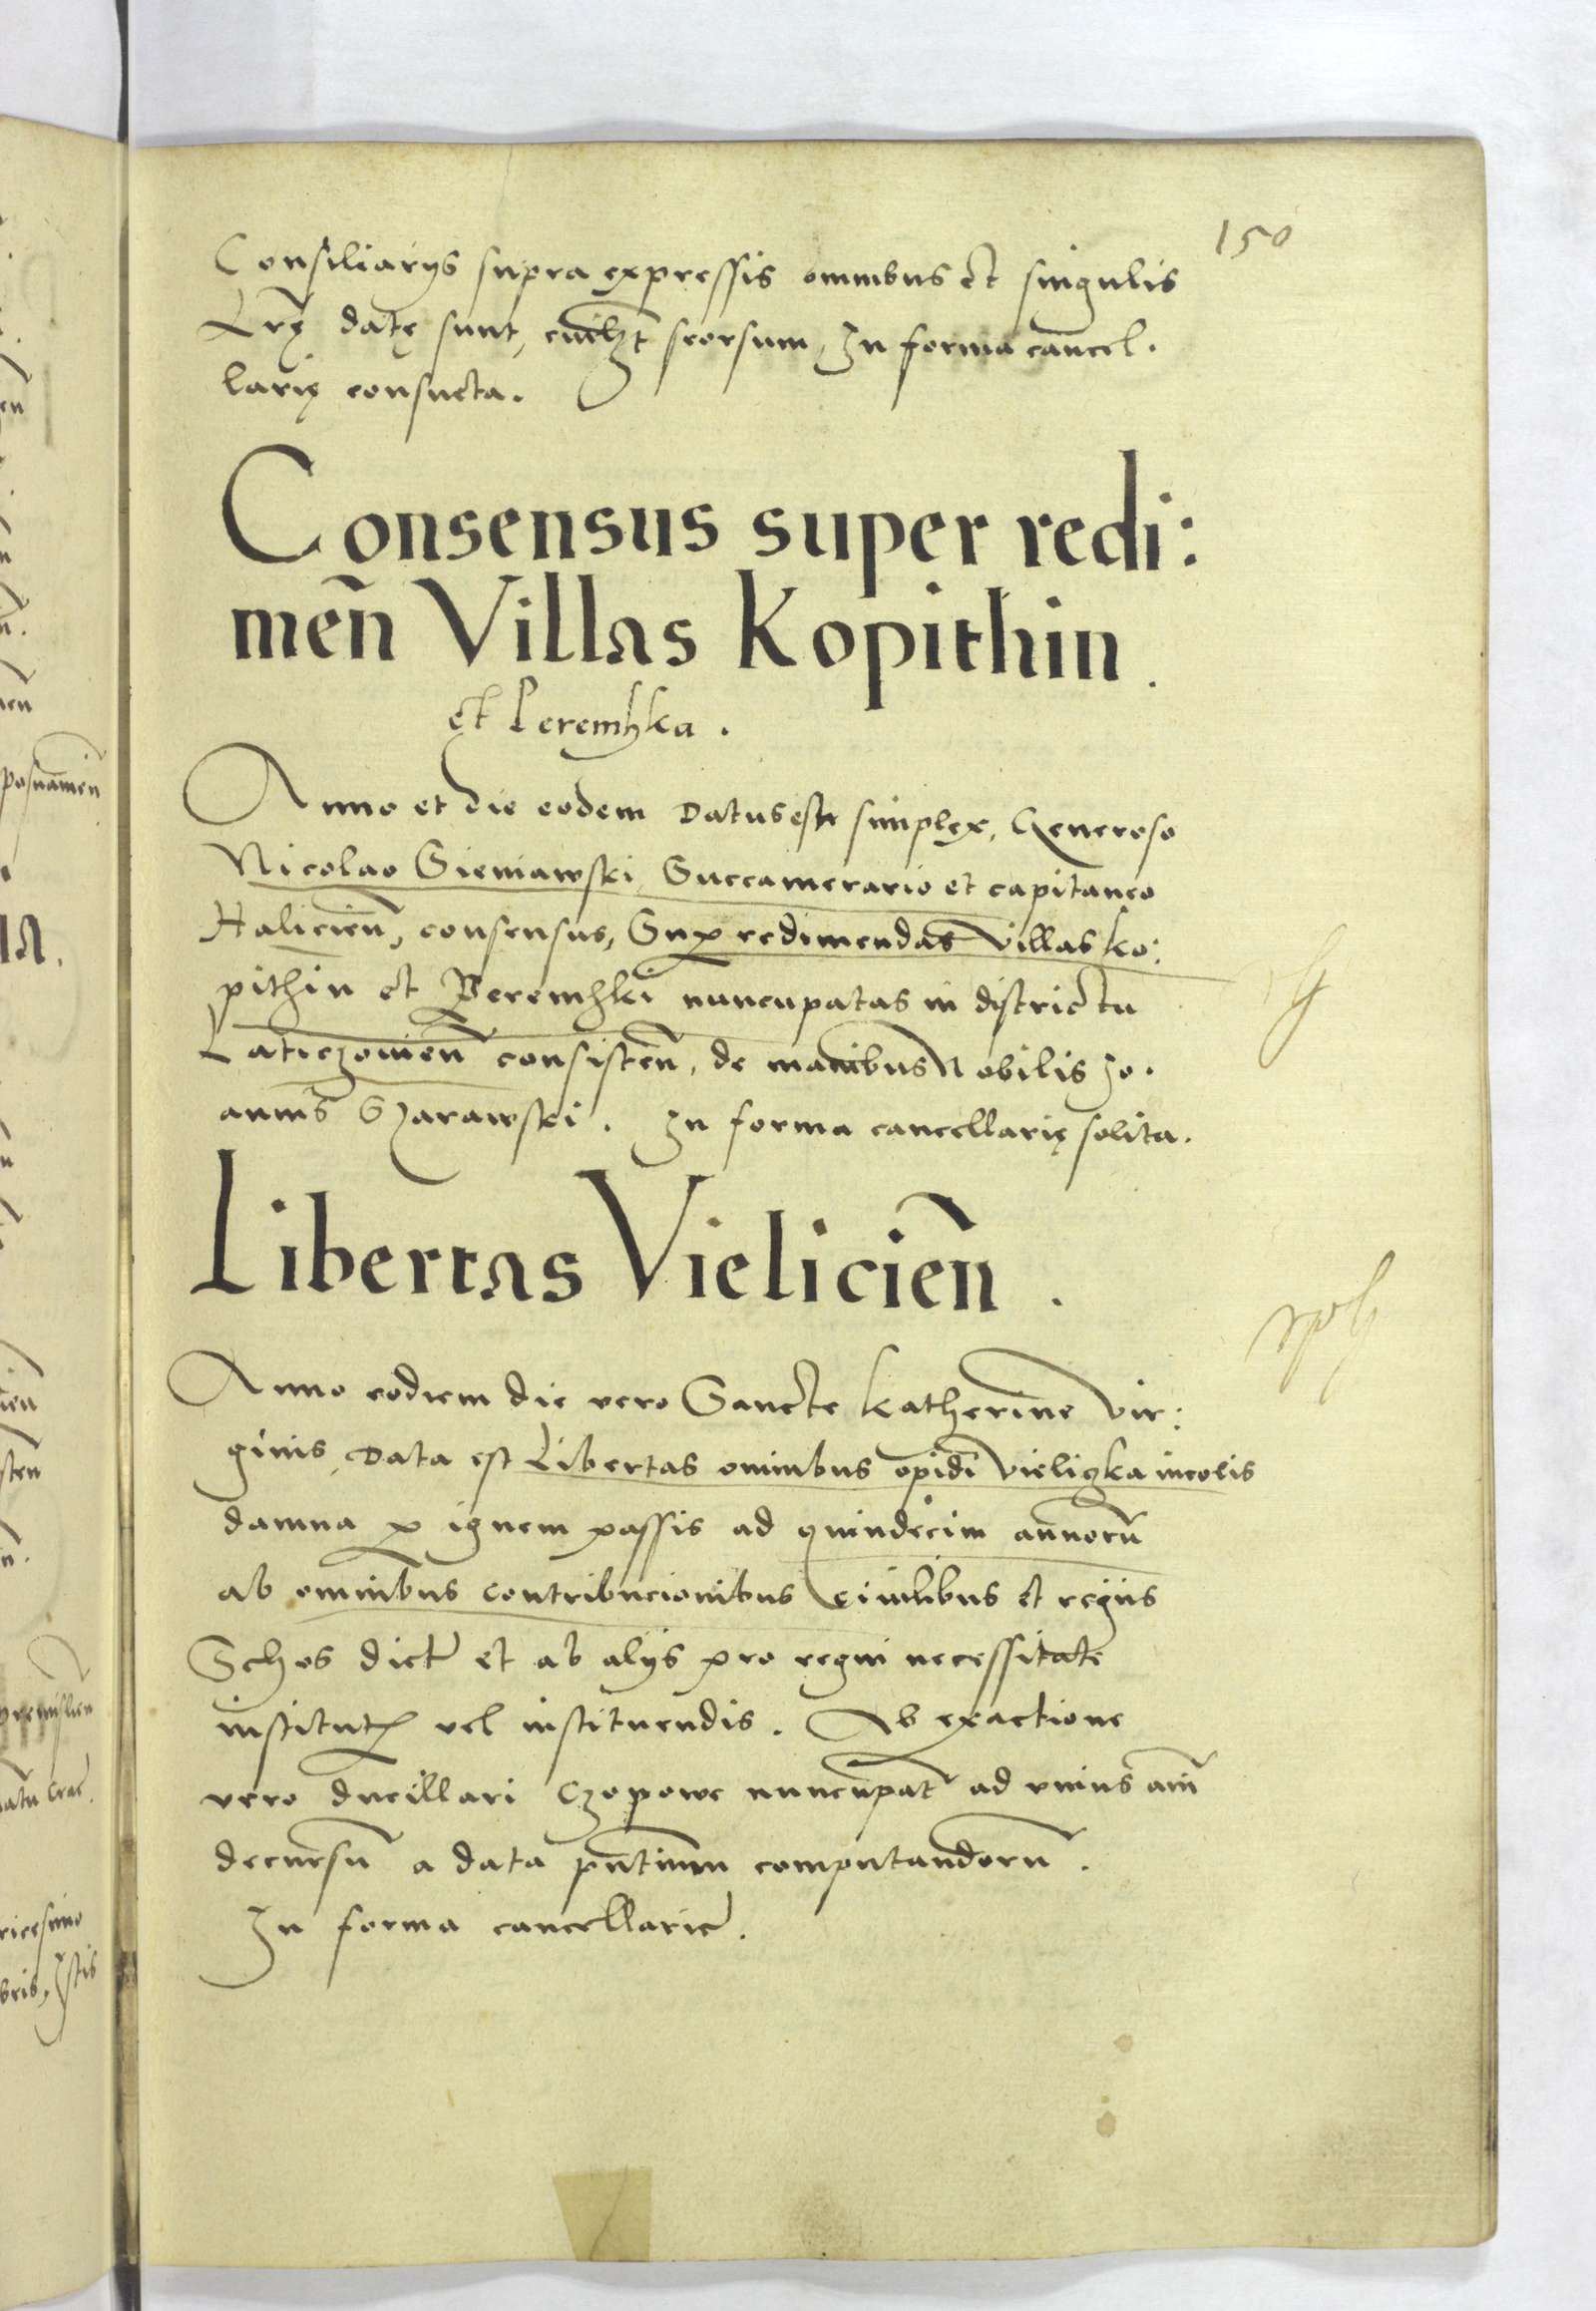 150
Consiliarijs supra expressis omnibus et singulis
Lrę datę sunt, cuilzt seorsum, In forma cancel.
larię consueta.
Consensus super redi:
men̄ Villas Kopithin.
et Peremhka.
Anno et die eodem Datus est simplex, Generoso
Nicolao Sieniawski Succamerario et capitaneo
Halicien̄, consensus, Sup redimendas villas ko:
pithin et Peremhki nuncupatas in districtu
Laticzovien̄ consisten̄, de manibus Nobilis Jo.
annis Szarawski. In forma cancellarię solita.
Libertas Vielicien̄.
Anno eodem die vero Sancte Katherine Vir:
ginis, Data est Libertas omnibus opidi Vieliczka incolis
damna p ignem passis ad quindecim annorū
ab omnibus contribucionibus civilibus et regiis
Schos dict et ab alijs pro regni necessitate
institut vel instituendis. Ab exactione
vero ducillari Czopowe nuncupat ad unius anni
decursū a data pn̄tium computandorū.
In forma cancellarie.
posnanien̄